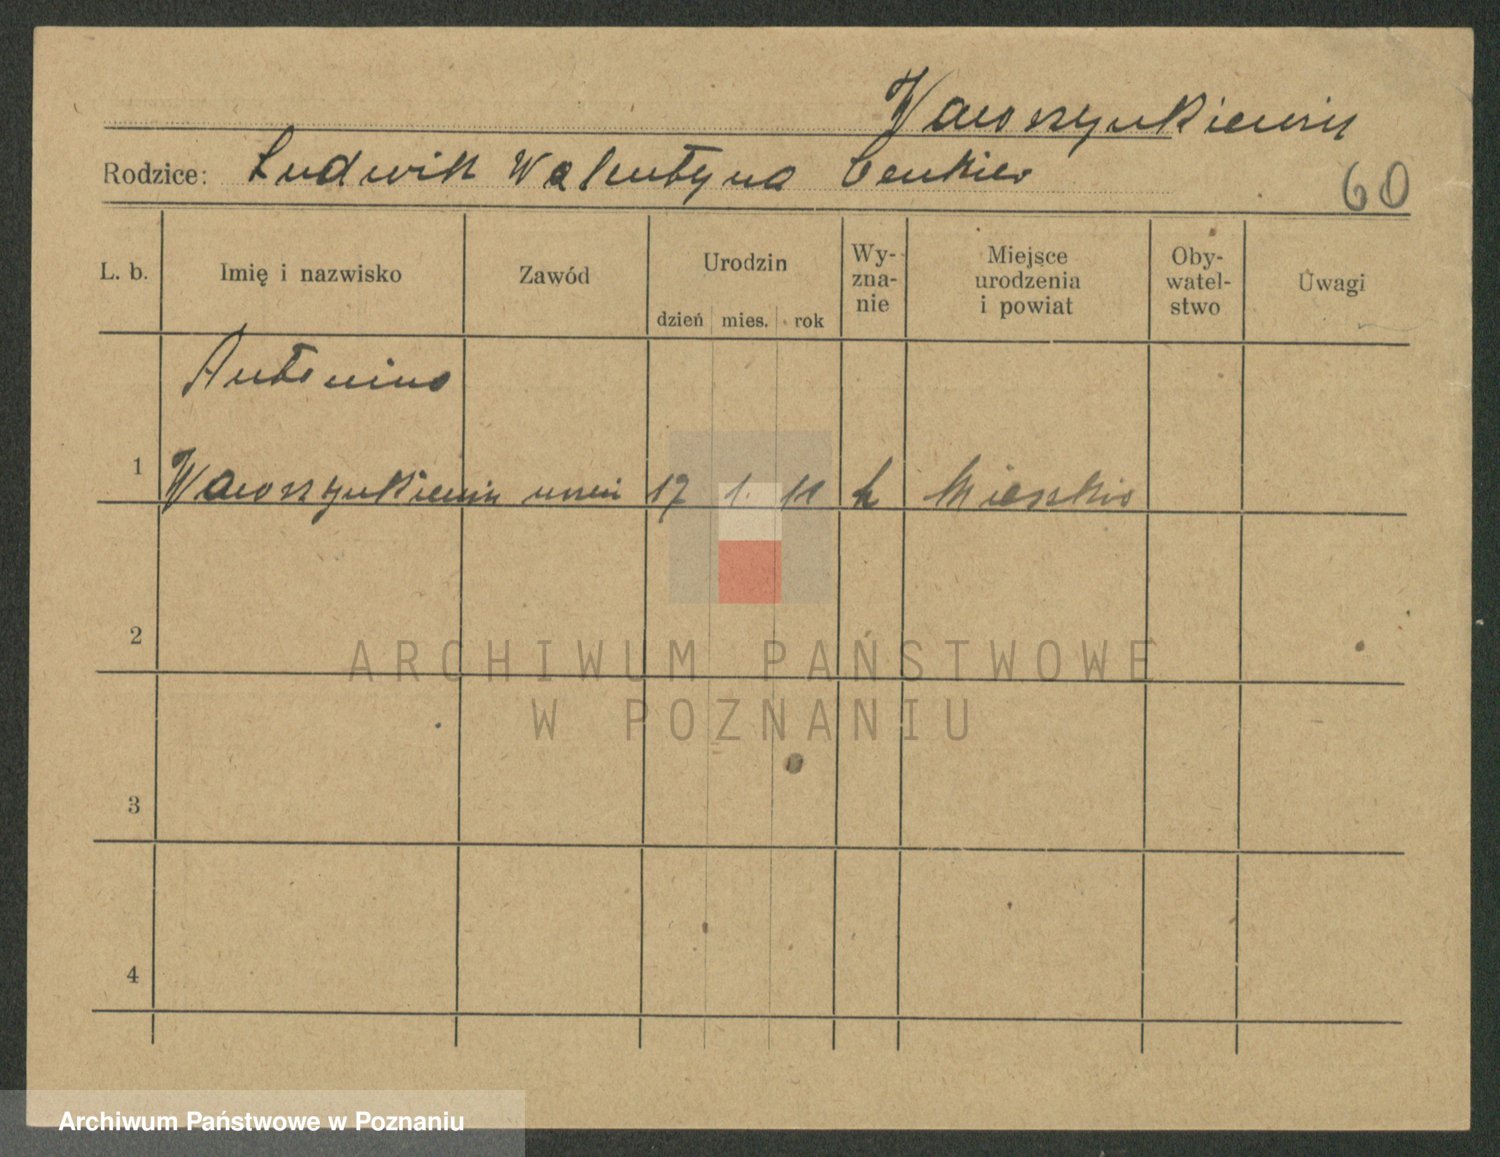 Wawrzynkiewicz
Rodzice: Ludwik Walentyna
60
L. b. Imię i nazwisko Zawód Urodzin dzień mies. rok Wy-zna-nie Miejsce urodzenia i powiat Oby-watel-stwo Uwagi
Antonina
1 Wawrzynkiewicz uczeń 17 1. 11 k
2
ARCHIWUM PAŃSTWOWE
W POZNANIU
3
4
Archiwum Państwowe w Poznaniu